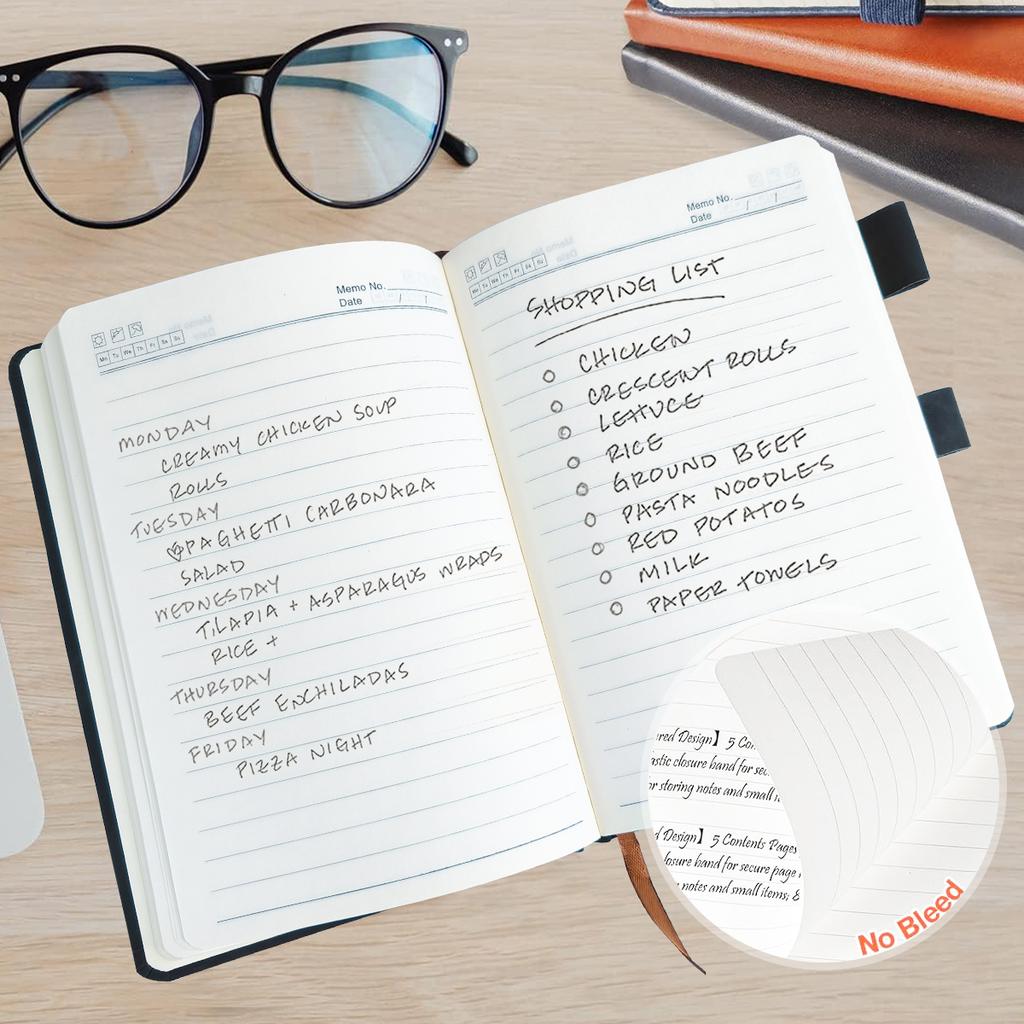 Memo No.
Date / /
Mo Tu We Th Fr Sa Su
MONDAY
CREAMY CHICKEN SOUP
ROLLS
TUESDAY
SPAGHETTI CARBONARA
SALAD
WEDNESDAY
TILAPIA + ASPARAGUS WRAPS
RICE +
THURSDAY
BEEF ENCHILADAS
FRIDAY
PIZZA NIGHT
Memo No.
Date / /
Mo Tu We Th Fr Sa Su
SHOPPING LIST
CHICKEN
CRESCENT ROLLS
LETTUCE
RICE
GROUND BEEF
PASTA NOODLES
RED POTATOS
MILK
PAPER TOWELS
red Design】 5 Con
astic closure band for sec
or storing notes and small it
d Design】 5 Contents Pages
losure band for secure page
notes and small items; &
No Bleed